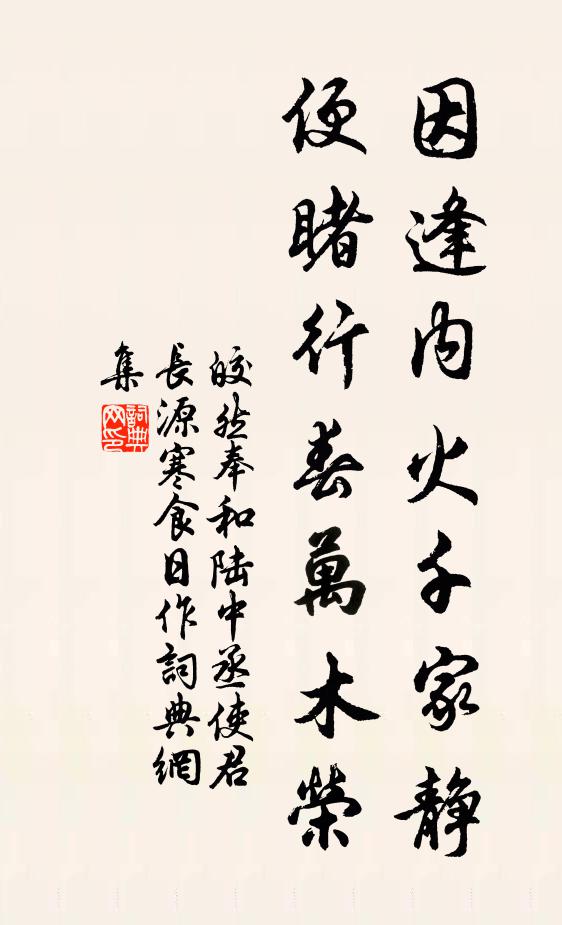 因逢内火千家靜
便睹行春萬木榮
皎然奉和陆中丞使君
長源寒食日作詞典網
集
詞典
网印